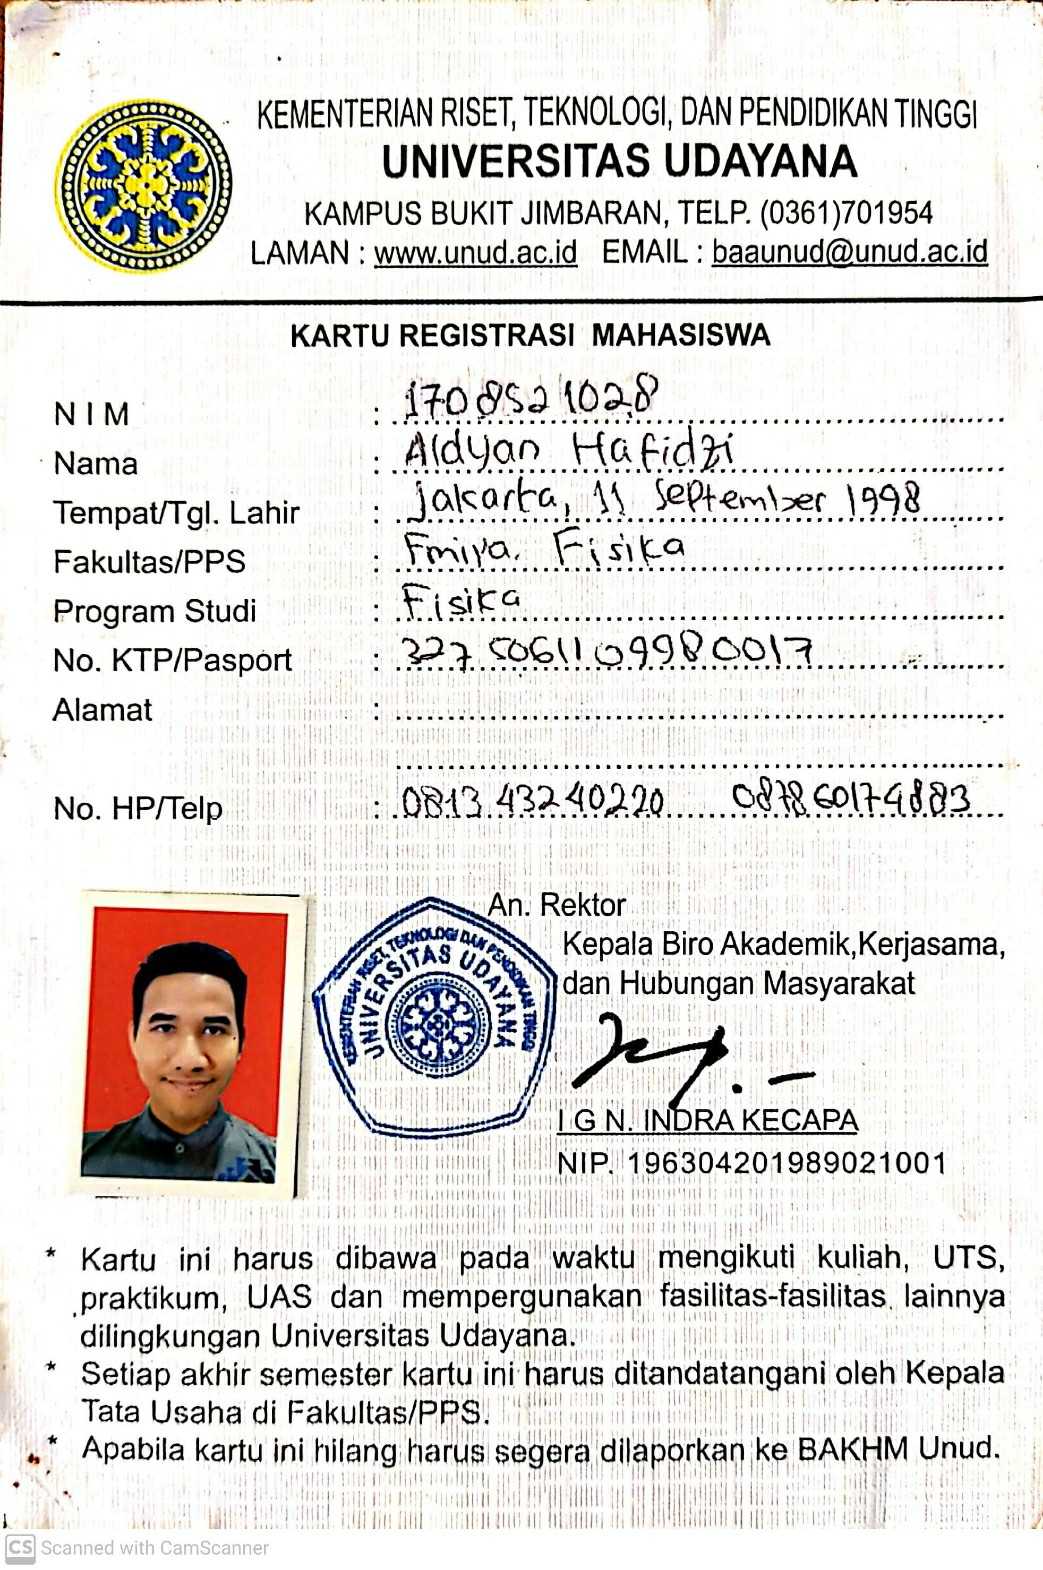 KEMENTERIAN RISET, TEKNOLOGI, DAN PENDIDIKAN TINGGI
UNIVERSITAS UDAYANA
KAMPUS BUKIT JIMBARAN, TELP. (0361)701954
LAMAN : www.unud.ac.id EMAIL : baaunud@unud.ac.id
KARTU REGISTRASI MAHASISWA
N I M : 1708521028
Nama : Aldyan Hafidzi
Tempat/Tgl. Lahir : Jakarta, 11 September 1998
Fakultas/PPS : Fmipa. Fisika
Program Studi : Fisika
No. KTP/Pasport : 3275061109980017
Alamat :
No. HP/Telp : 081343240220 087860174883
An. Rektor
Kepala Biro Akademik,Kerjasama,
dan Hubungan Masyarakat
KEMENTERIAN RISET, TEKNOLOGI DAN PENDIDIKAN TINGGI
UNIVERSITAS UDAYANA
I G N. INDRA KECAPA
NIP. 196304201989021001
* Kartu ini harus dibawa pada waktu mengikuti kuliah, UTS,
praktikum, UAS dan mempergunakan fasilitas-fasilitas lainnya
dilingkungan Universitas Udayana.
* Setiap akhir semester kartu ini harus ditandatangani oleh Kepala
Tata Usaha di Fakultas/PPS.
* Apabila kartu ini hilang harus segera dilaporkan ke BAKHM Unud.
CS Scanned with CamScanner